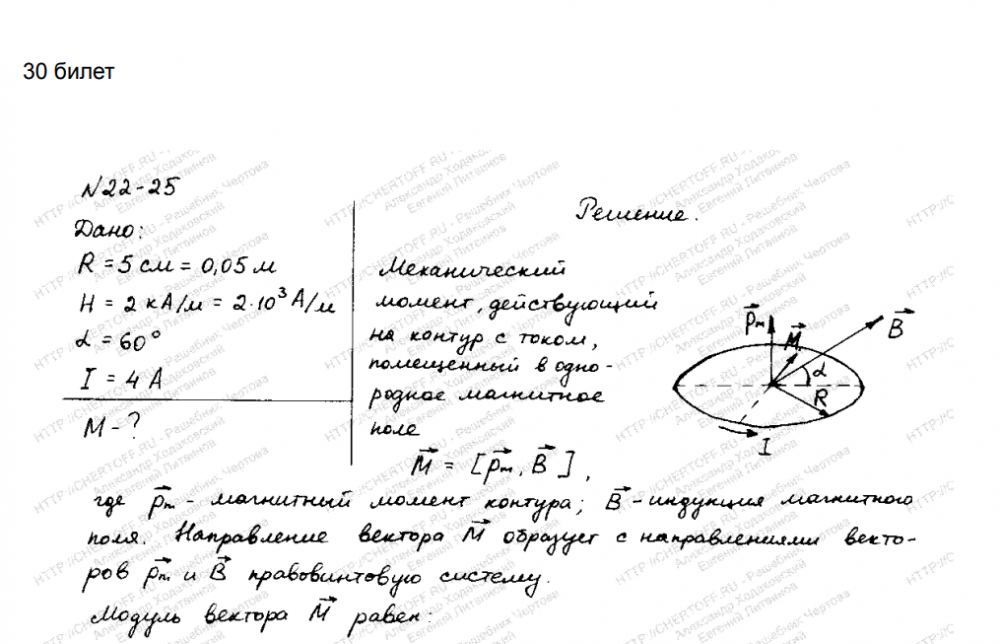 30 билет
№22-25
Дано:
R = 5 см = 0,05 м
H = 2 кА/м = 2·10³ А/м
α = 60°
I = 4 А
М - ?
Решение.
Механический
момент, действующий
на контур с током,
помещенный в одно-
родное магнитное
поле
M⃗ = [p⃗ₘ, B⃗],
p⃗ₘ
M⃗
B⃗
α
R
I
где p⃗ₘ - магнитный момент контура; B⃗ - индукция магнитного
поля. Направление вектора M⃗ образует с направлениями векто-
ров p⃗ₘ и B⃗ правовинтовую систему.
Модуль вектора M⃗ равен:
HTTP://CHERTOFF.RU - Решебник Чертова
Александр Ходаковский
Евгений Литвинов